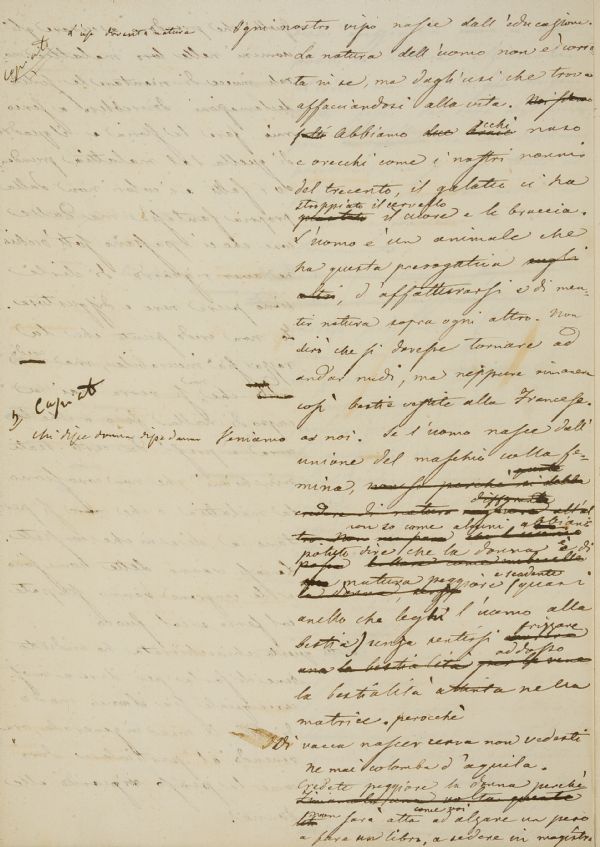 L'uso diventa natura
Copiato
Ogni nostro vizio nasce dall'educazione.
La natura dell'uomo non è corro-
ta in se, ma dagli usi che trova
affacciandosi alla vita.
Abbiamo occhi naso
e orecchi come i nostri nonni
del trecento, il galateo ci ha
stroppiato il cervello
il cuore e le braccia.
L'uomo è un animale che
ha questa prerogativa
, d'affatturarsi e di men-
tir natura sopra ogni altro. Non
dirò che si dovesse tornare ad
andar nudi, ma neppure rimanere
così bestie vestite alla Francese.
Copiato
chi disse donna disse danno Veniamo a noi. Se l'uomo nasce dall'
unione del maschio colla fe-
mina,
non so come alcuni abbiano
potuto dire che la donna è di
natura peggiore e scadente (quasi
anello che leghi l'uomo alla
bestia) senza sentirsi frizzare
addosso
la bestialità nella
matrice. perocchè
Di vacca nascer cerva non vedesti
ne mai colomba d'aquila.
Credete peggiore la donna perchè
non sarà atta come voi ad alzare un peso
a fare un libro, a sedere in magistra